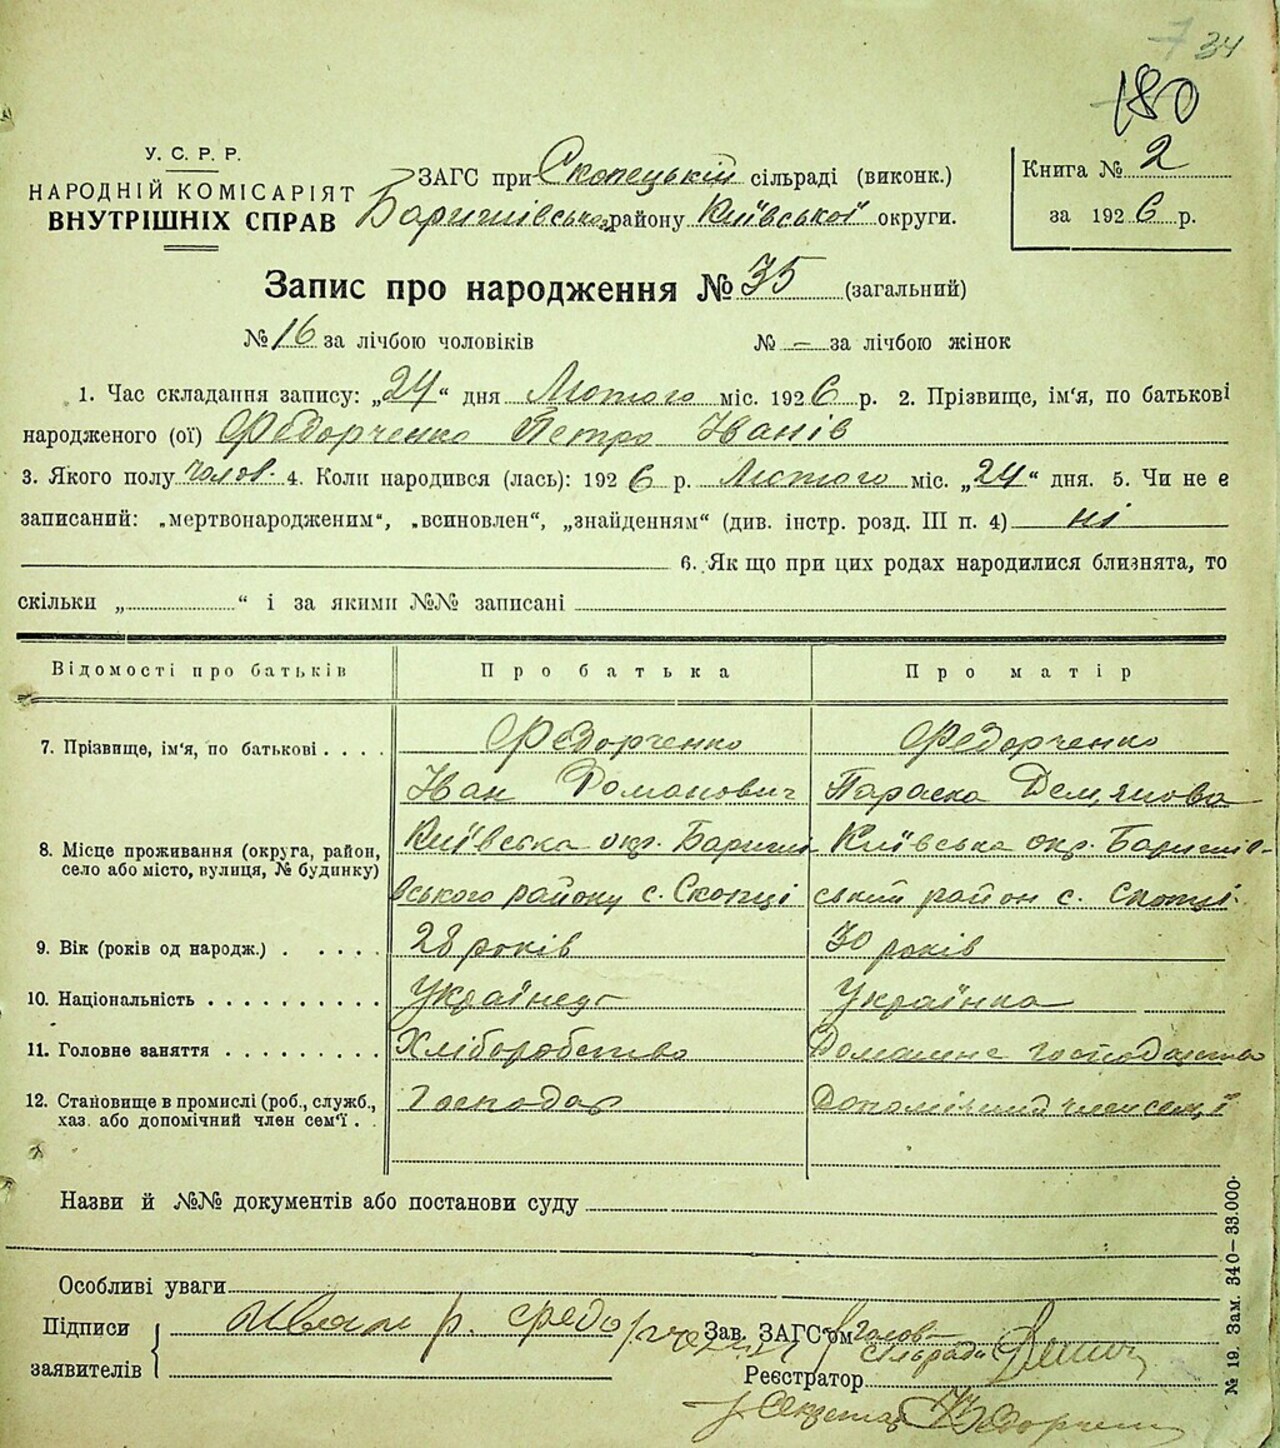 7 34
180
У. С. Р. Р.
НАРОДНІЙ КОМІСАРІЯТ
ВНУТРІШНІХ СПРАВ
ЗАГС при Скопецькій сільраді (виконк.)
Баришівського району Київської округи.
Книга № 2
за 1926 р.
Запис про народження № 35 (загальний)
№ 16 за лічбою чоловіків № – за лічбою жінок
1. Час складання запису: „24“ дня Лютого міс. 1926 р. 2. Прізвище, ім'я, по батькові
народженого (ої) Федорченко Петро Іванів
3. Якого полу чолов. 4. Коли народився (лась): 1926 р. Лютого міс. „24“ дня. 5. Чи не є
записаний: „мертвонародженим“, „всиновлен“, „знайденням“ (див. інстр. розд. III п. 4) ні
6. Як що при цих родах народилися близнята, то
скільки „ “ і за якими №№ записані
Відомості про батьків Про батька Про матір
7. Прізвище, ім'я, по батькові . . . . Федорченко Федорченко
Іван Романович Параска Дем,янова
8. Місце проживання (округа, район, Київська окр. Бариші Київська окр. Баришів-
село або місто, вулиця, № будинку) вського району с. Скопці ський район с. Скопці.
9. Вік (років од народж.) . . . . . 28 років 30 років
10. Національність . . . . . . . . . . Українець Українка
11. Головне заняття . . . . . . . . . Хліборобство Домашнє господарство
12. Становище в промислі (роб., служб., Господар Допомічний член сем,ї
хаз. або допомічний член сем'ї . .
Назви й №№ документів або постанови суду
Особливі уваги
Підписи Иван р. федорченко Зав. ЗАГС'ом Голов-
сільради
заявителів Реєстратор
Секретар Федорченко
№ 19. Зам. 340—33.000.